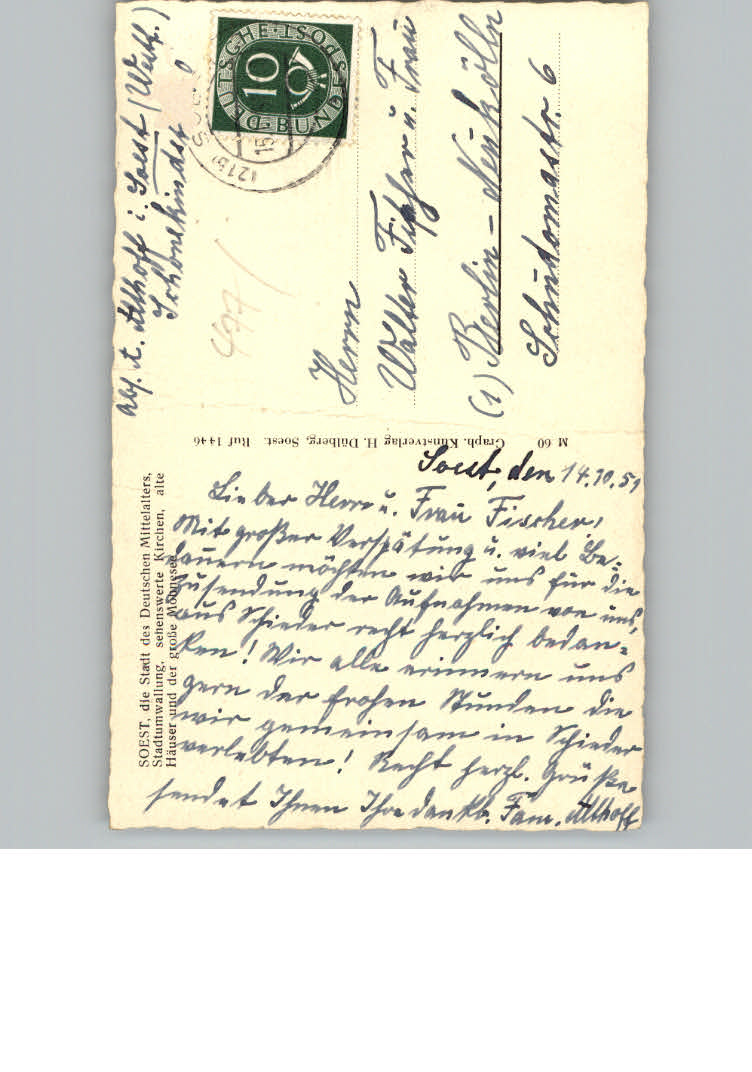 SOEST, die Stadt des Deutschen Mittelalters,
Stadtumwallung, sehenswerte Kirchen, alte
Häuser und der große Möhnesee
Soest, den 14.10.51
Lieber Herr u. Frau Fischer!
Mit großer Verspätung u. viel Be-
dauern möchten wir uns für die
Zusendung der Aufnahmen von uns,
aus Schieder recht herzlich bedan-
ken! Wir alle erinnern uns
gern der frohen Stunden die
wir gemeinsam in Schieder
verlebten! Recht herzl. Grüße
sendet Ihnen Ihre dankb. Fam. Althoff
M 60 Graph. Kunstverlag H. Dülberg, Soest. Ruf 1446
Abs. A. Althoff i. Soest (Westf.)
Schonekindstr
477
DEUTSCHE BUNDESPOST
10
(21b)
SOEST
15
Herrn
Walter Fischer u. Frau
(1) Berlin-Neukölln
Schudomastr. 6